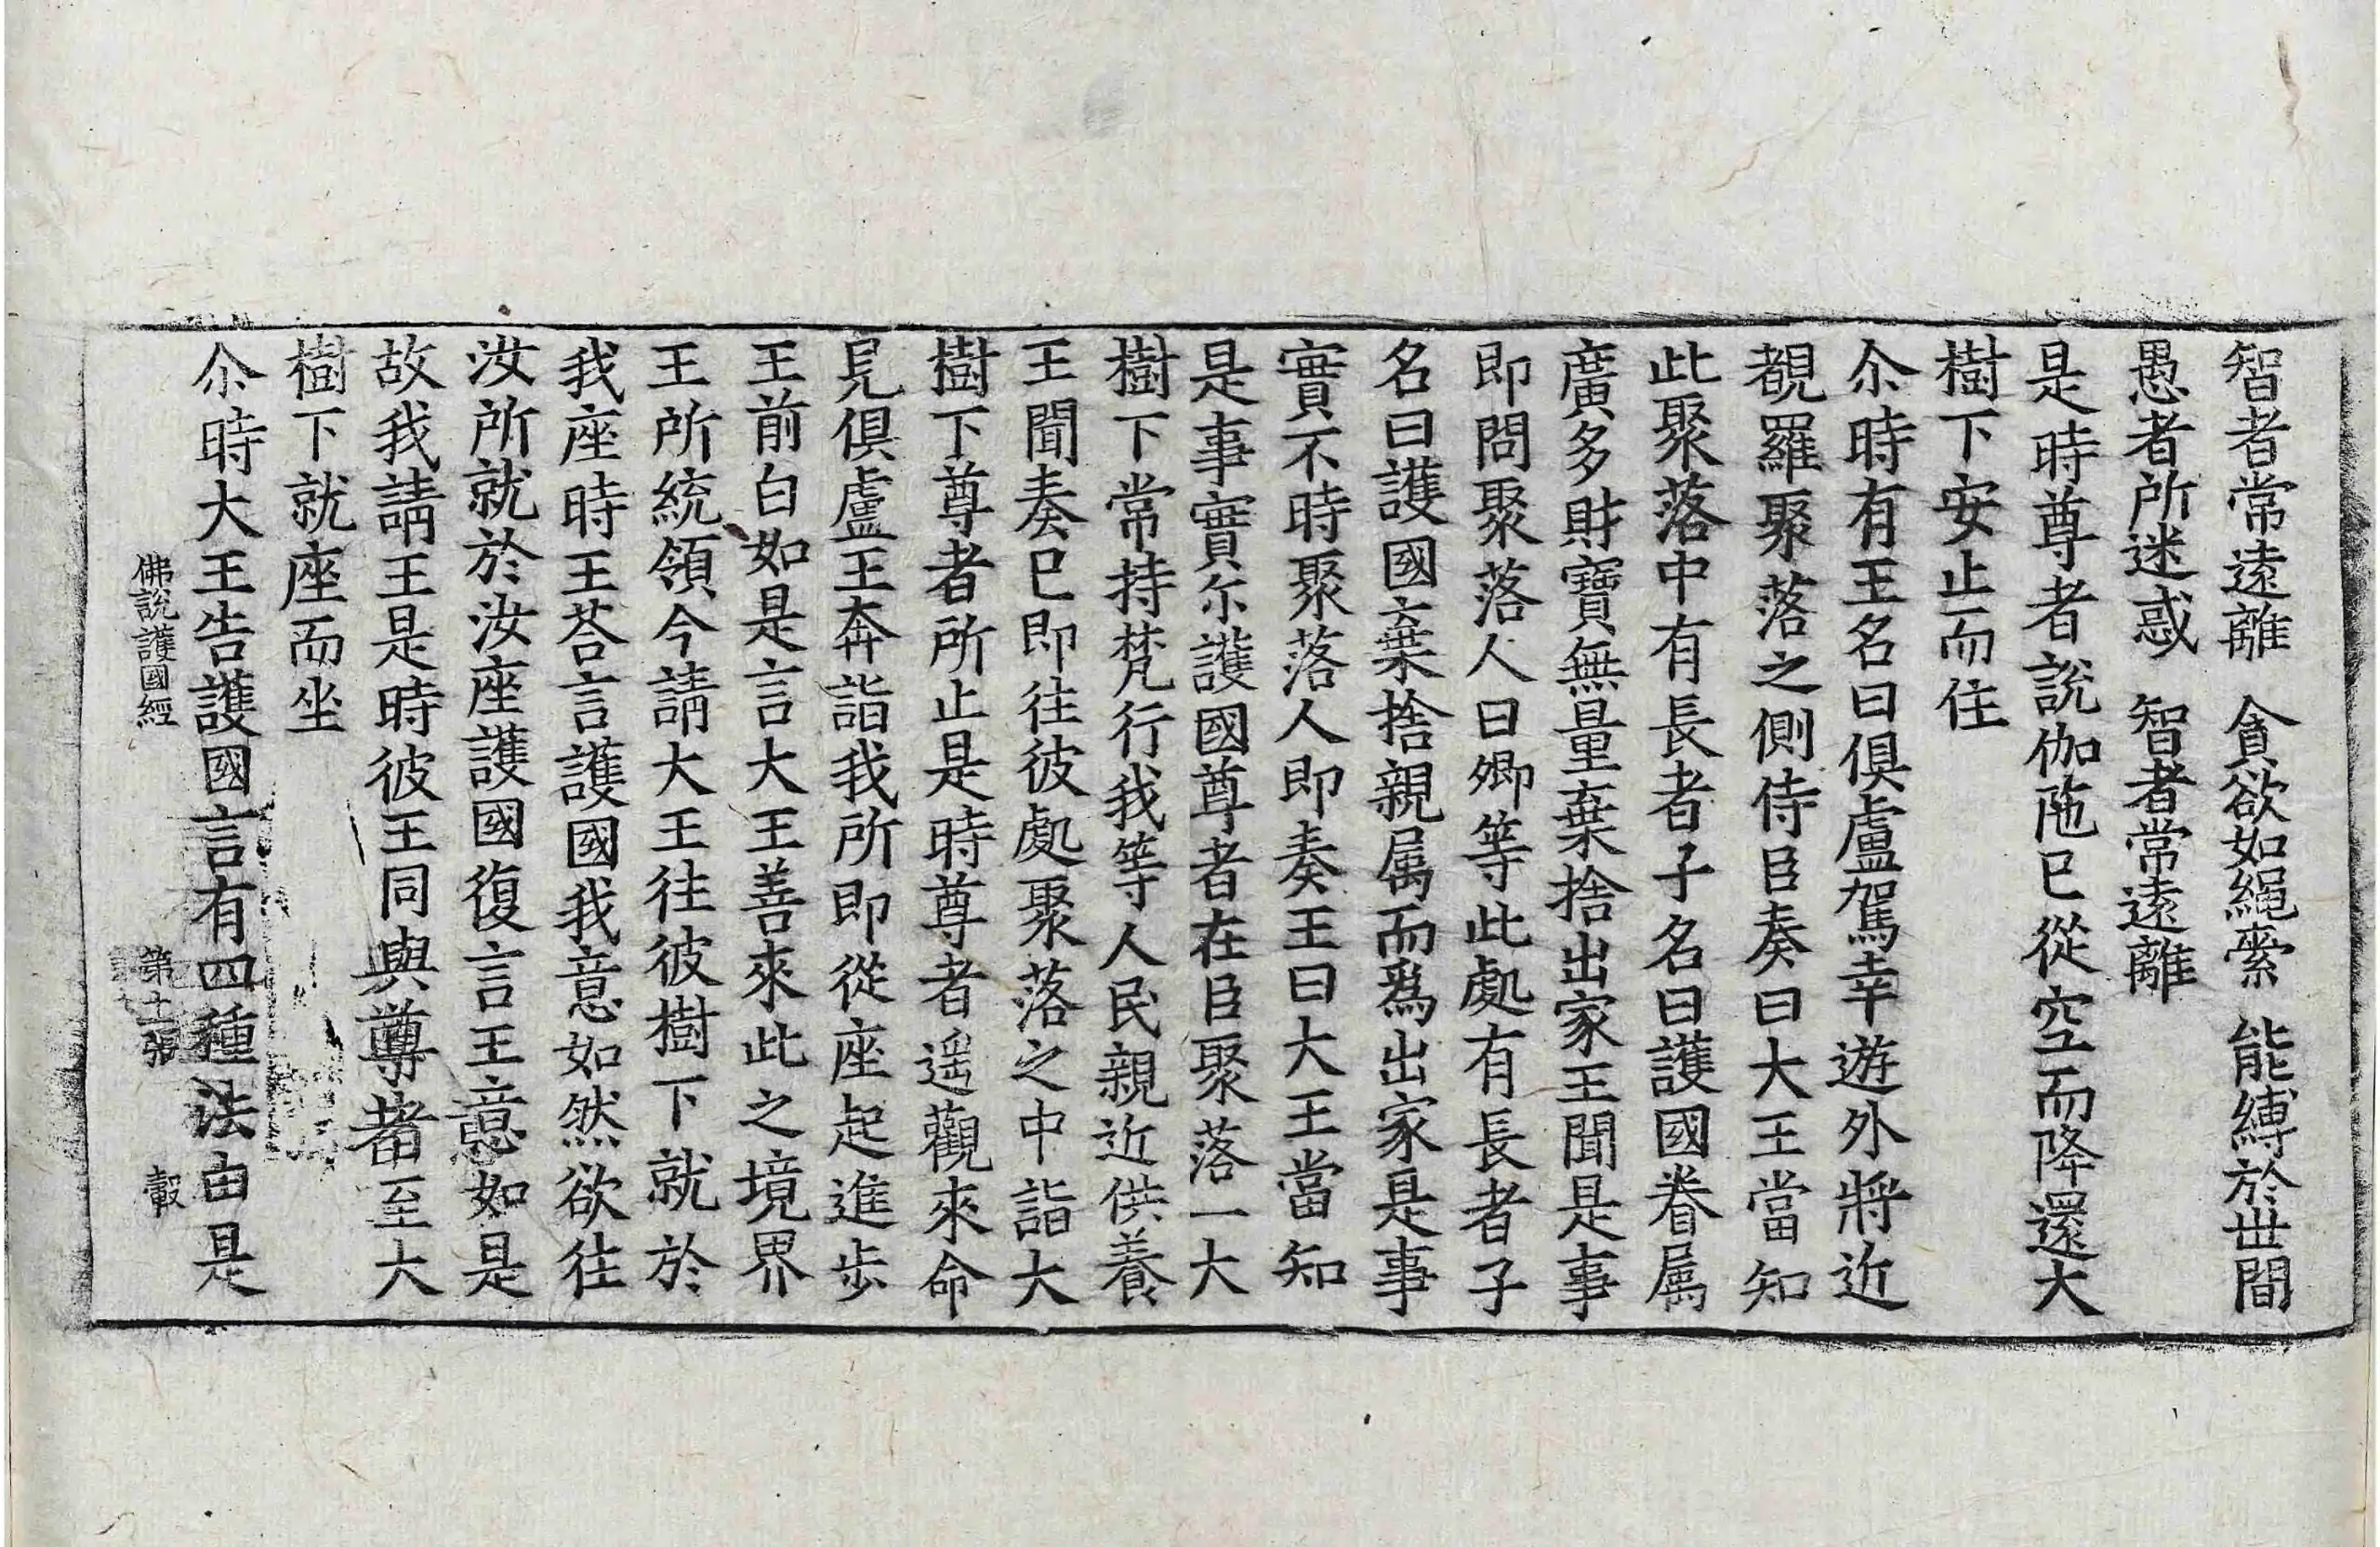 智者常遠離　貪欲如繩索　能縛於世間
愚者所迷惑　智者常遠離
是時尊者說伽陁已從空而降還大
樹下安止而住
尒時有王名曰俱盧駕幸遊外將近
覩羅聚落之側侍臣奏曰大王當知
此聚落中有長者子名曰護國眷属
廣多財寶無量棄捨出家王聞是事
即問聚落人曰卿等此處有長者子
名曰護國棄捨親属而爲出家是事
實不時聚落人即奏王曰大王當知
是事實尒護國尊者在臣聚落一大
樹下常持梵行我等人民親近供養
王聞奏已即往彼處聚落之中詣大
樹下尊者所止是時尊者遥觀來命
見俱盧王奔詣我所即從座起進步
王前白如是言大王善來此之境界
王所統領今請大王往彼樹下就於
我座時王荅言護國我意如然欲往
汝所就於汝座護國復言王意如是
故我請王是時彼王同與尊者至大
樹下就座而坐
尒時大王告護國言有四種法由是
佛說護國經　第十張　轂